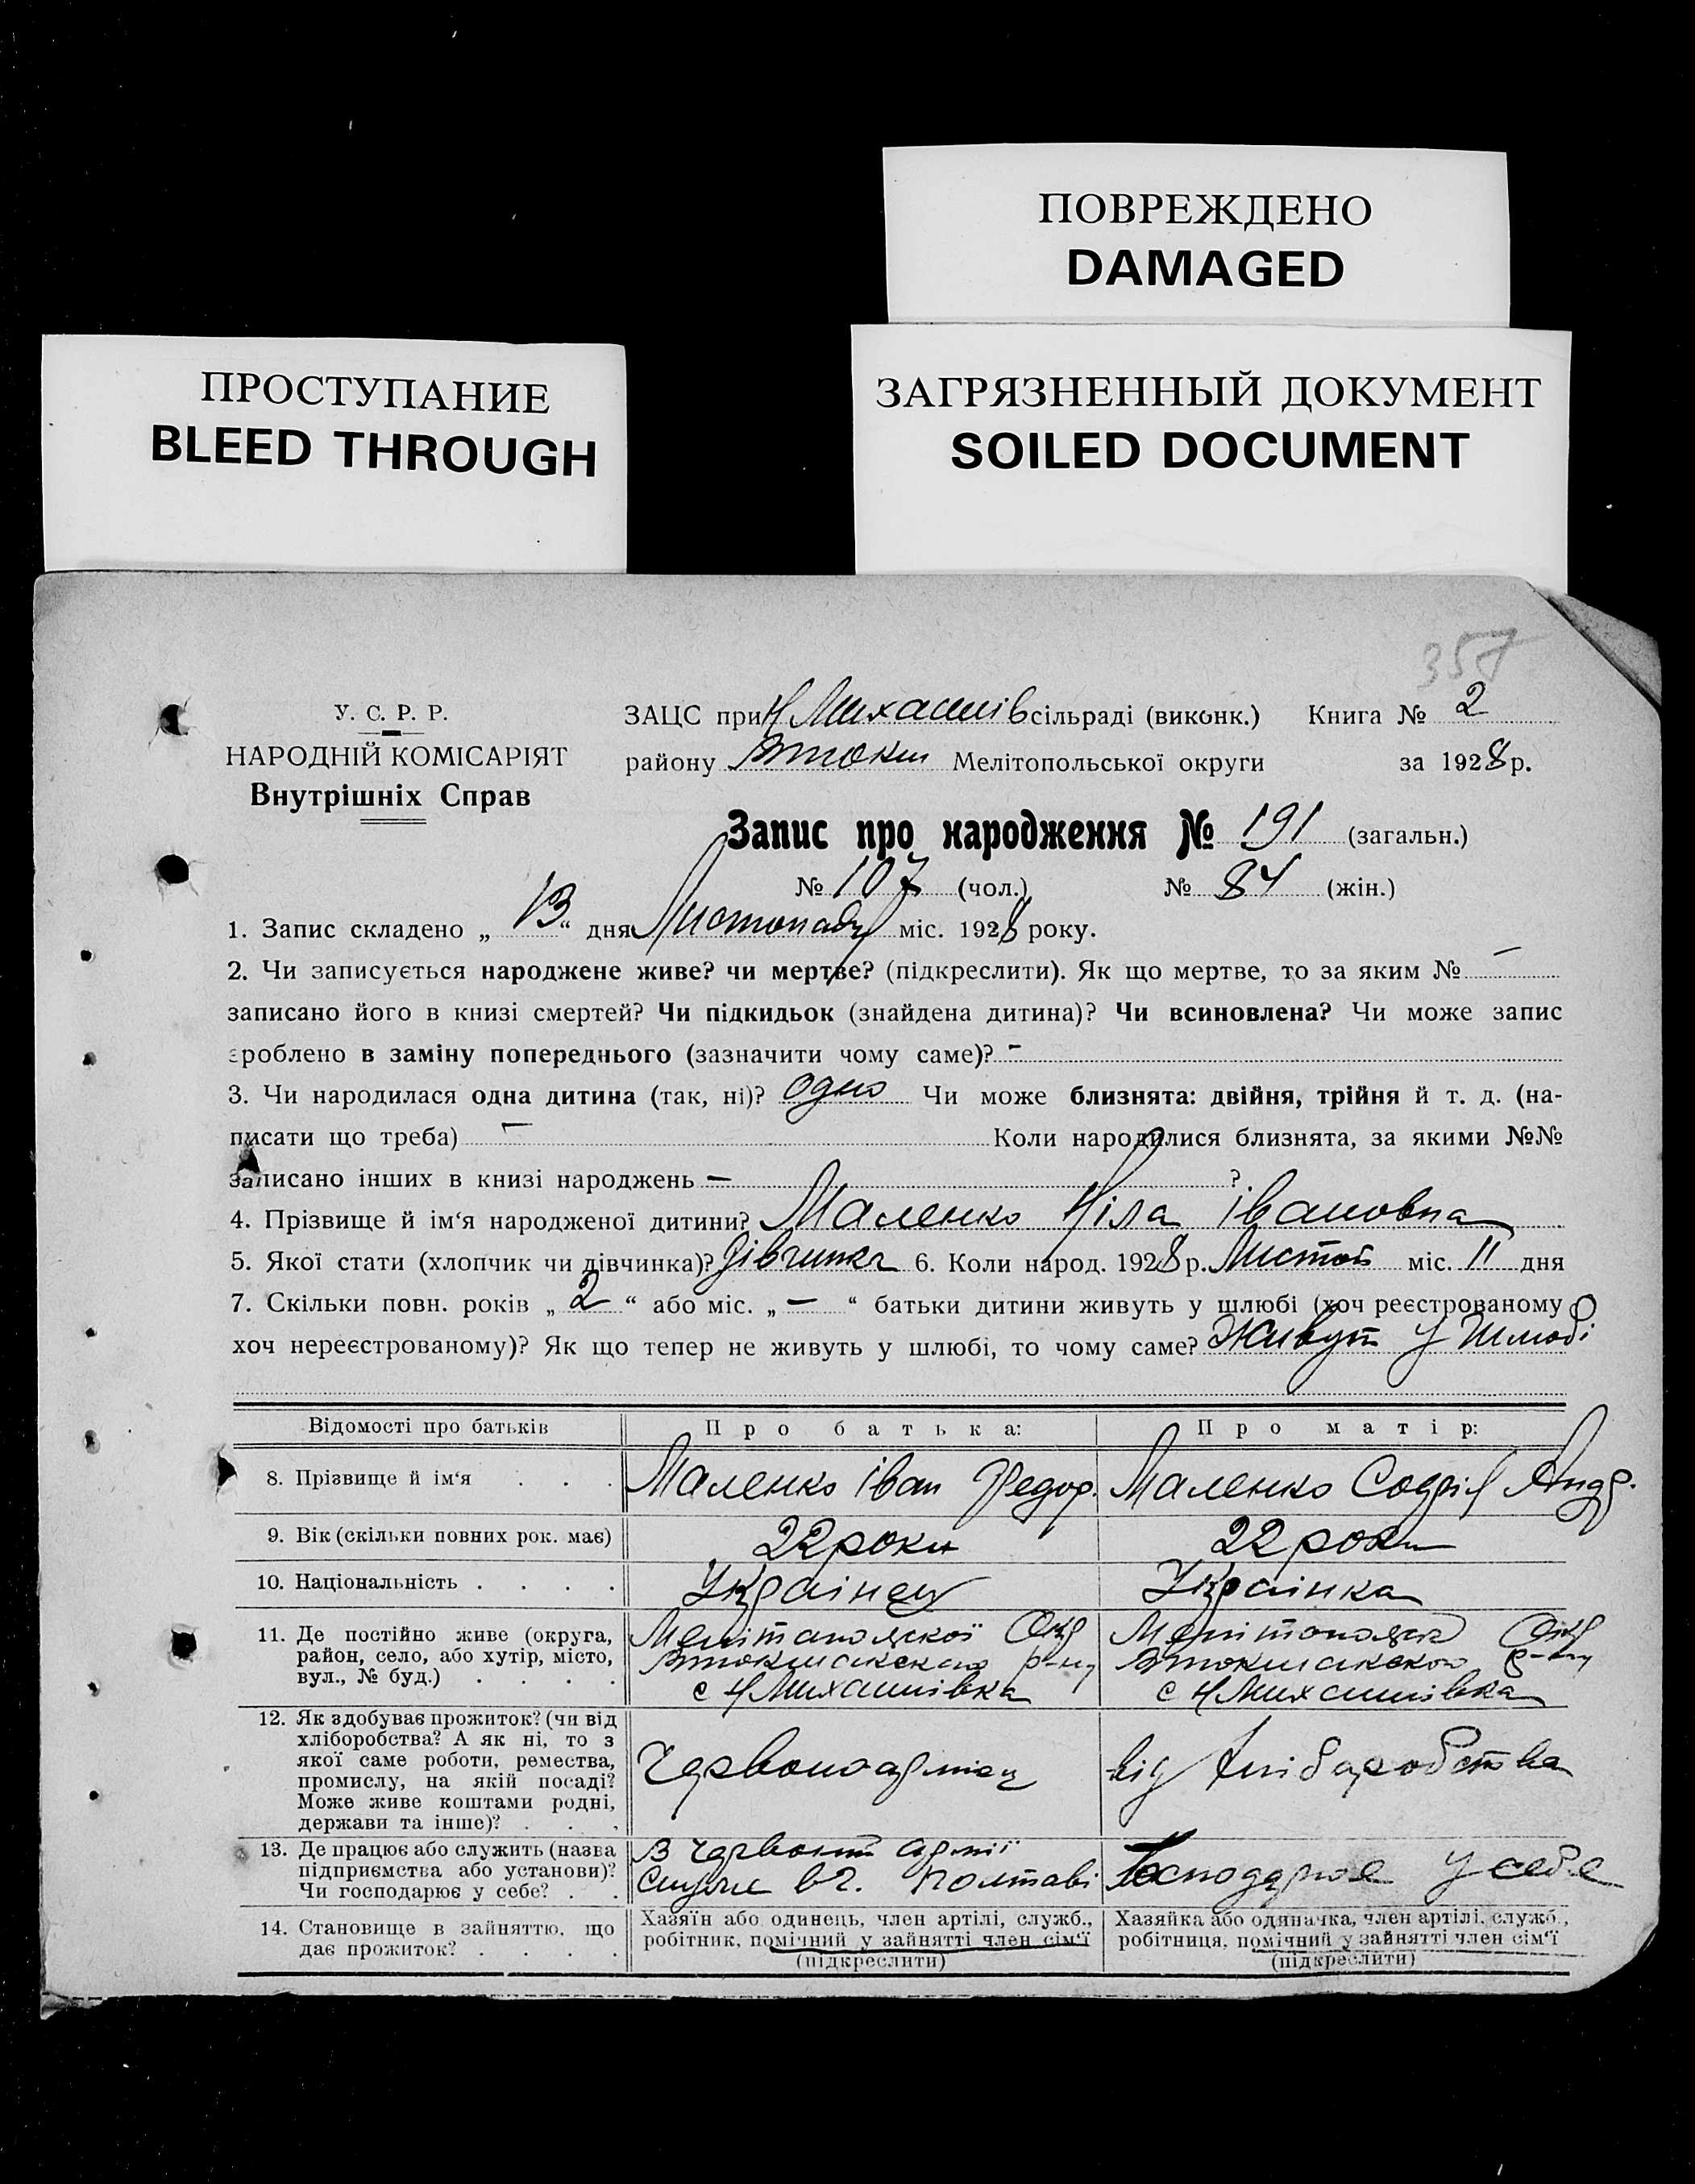 ПОВРЕЖДЕНО
DAMAGED
ПРОСТУПАНИЕ
BLEED THROUGH
ЗАГРЯЗНЕННЫЙ ДОКУМЕНТ
SOILED DOCUMENT
357
У. С. Р. Р.
НАРОДНІЙ КОМІСАРІЯТ
Внутрішніх Справ
ЗАЦС при Н Михайлів сільраді (виконк.) Книга № 2
району Втокм Мелітопольської округи за 1928 р.
Запис про народження № 191 (загальн.)
№ 107 (чол.) № 84 (жін.)
1. Запис складено „ 13 “ дня Листопаду міс. 1928 року.
2. Чи записується народжене живе? чи мертве? (підкреслити). Як що мертве, то за яким № —
записано його в книзі смертей? Чи підкидьок (знайдена дитина)? Чи всиновлена? Чи може запис
зроблено в заміну попереднього (зазначити чому саме)? -
3. Чи народилася одна дитина (так, ні)? одно Чи може близнята: двійня, трійня й т. д. (на-
писати що треба) — Коли народилися близнята, за якими №№
записано інших в книзі народжень — ?
4. Прізвище й ім‘я народженої дитини? Маленко Ніла Івановна
5. Якої стати (хлопчик чи дівчинка)? Дівчинка 6. Коли народ. 1928 р. Листоп міс. 11 дня
7. Скільки повн. років „ 2 “ або міс. „ — “ батьки дитини живуть у шлюбі (хоч реєстрованому
хоч нереєстрованому)? Як що тепер не живуть у шлюбі, то чому саме? Живут у Шлюбі
Відомості про батьків Про батька: Про матір:
8. Прізвище й ім‘я . . . Маленко Іван Федор. Маленко Андр.
9. Вік (скільки повних рок. має) 22 роки 22 роки
10. Національність . . . . Українец Українка
11. Де постійно живе (округа,
район, село, або хутір, місто,
вул., № буд.) . . . .
Мелітопольскої Окр
Втокмакского р-ну
с Н Михайлівка
Мелітопольск Окр
Втокмакского р-ну
с Н Михайлівка
12. Як здобуває прожиток? (чи від
хліборобства? А як ні, то з
якої саме роботи, ремества,
промислу, на якій посаді?
Може живе коштами родні,
держави та інше)? . . .
Червоноармієц
від хліборобства
13. Де працює або служить (назва
підприємства або установи)?
Чи господарює у себе? . .
В Червоній армії
Служе в г. Полтаві
Господарює у себе
14. Становище в зайняттю, що
дає прожиток? . . . .
Хазяїн або одинець, член артілі, служб.,
робітник, помічний у зайнятті член сім‘ї
(підкреслити)
Хазяйка або одиначка, член артілі, служб.,
робітниця, помічний у зайнятті член сім‘ї
(підкреслити)